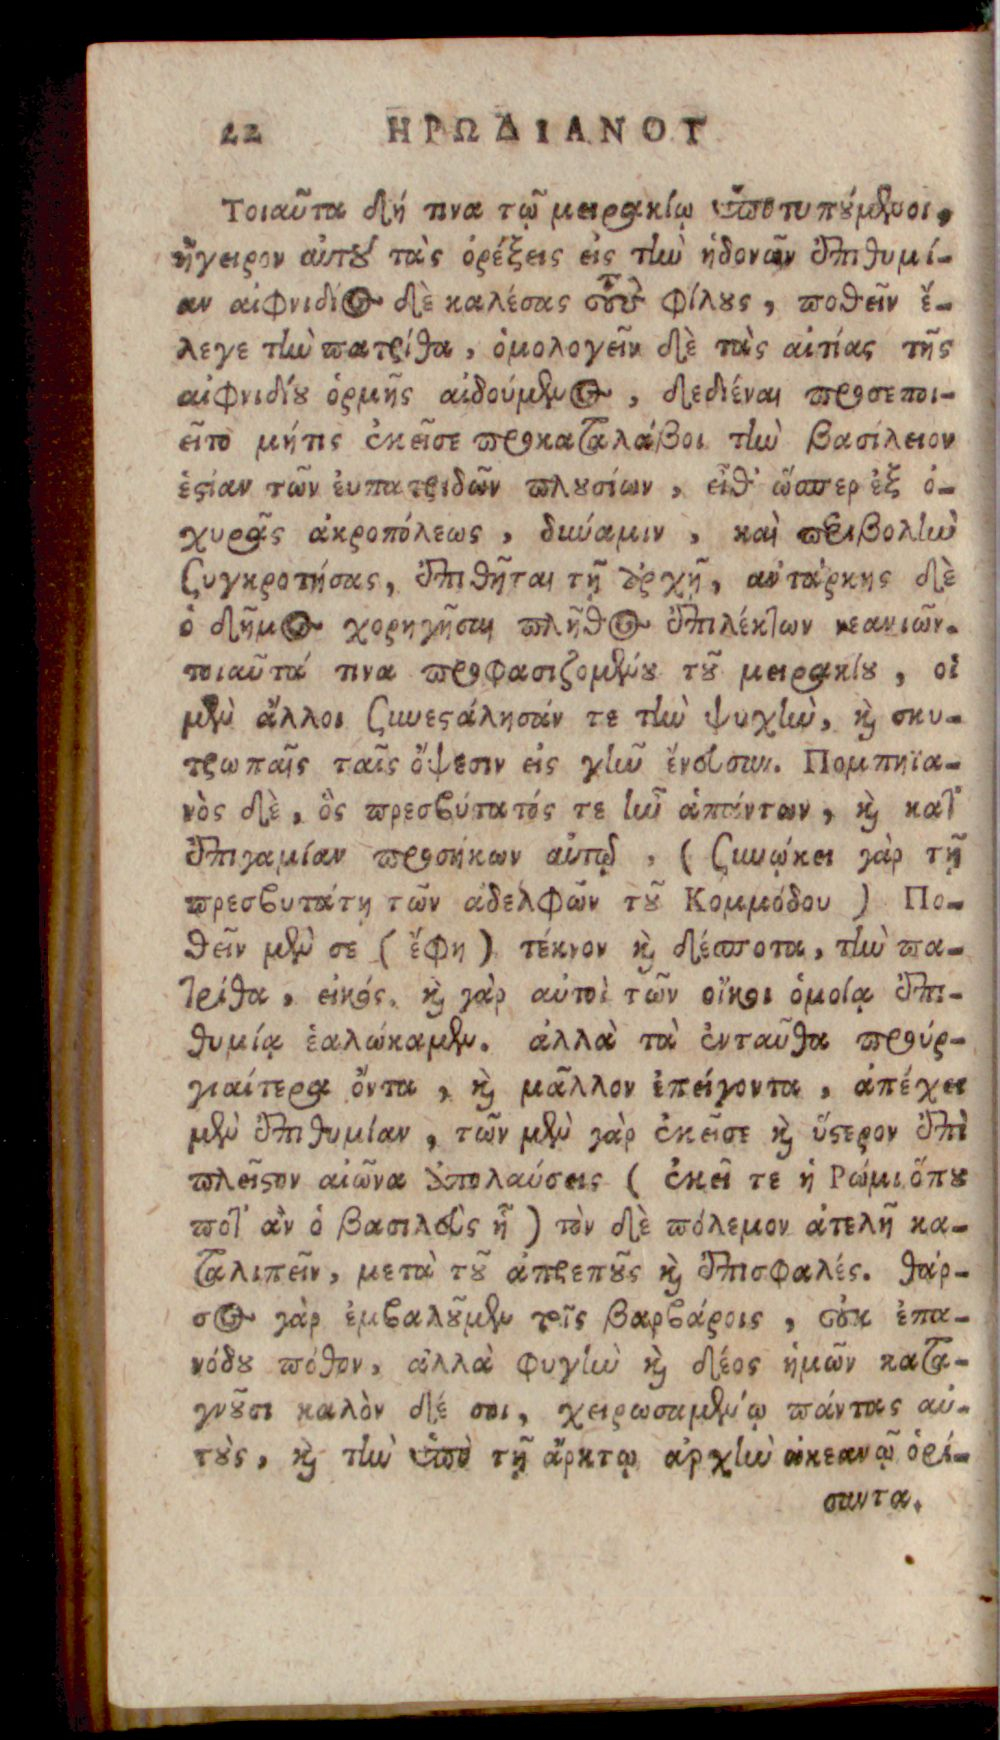 22 ΗΡΩΔΙΑΝΟΥ
Τοιαῦτα δή τινα τῷ μειρακίῳ ὑποτυπούμενοι,
ἤγειρον αὐτοῦ τὰς ὀρέξεις εἰς τὴν ἡδονῶν ἐπιθυμί-
αν αἰφνιδίος δὲ καλέσας τοὺς φίλους, ποθεῖν ἔ-
λεγε τὴν πατρίδα, ὁμολογεῖν δὲ τὰς αἰτίας τῆς
αἰφνιδίου ὁρμῆς αἰδούμενος, δεδιέναι προσεποι-
εῖτο μήτις ἐκεῖσε προκαταλάβοι τὴν βασίλειον
ἑστίαν τῶν ἐυπατριδῶν πλουσίων, εἶθ' ὥσπερ ἐξ ὀ-
χυρᾶς ἀκροπόλεως, δύναμιν, καὶ περιβολὴν
συγκροτήσας, ἐπιθῆται τῇ ἀρχῇ, αὐτάρκης δὲ
ὁ δῆμος χορηγῆσαι πλῆθος ἐπιλέκτων νεανιῶν.
τοιαῦτά τινα προφασιζομένου τοῦ μειρακίου, οἱ
μὲν ἄλλοι συνεστάλησάν τε τὴν ψυχὴν, καὶ σκυ-
τρωπαῖς ταῖς ὄψεσιν εἰς γῆν ἔνευσαν. Πομπηϊα-
νὸς δὲ, ὃς πρεσβύτατός τε ἦν ἁπάντων, καὶ κατ'
ἐπιγαμίαν προσήκων αὐτῷ, (συνῴκει γὰρ τῇ
πρεσβυτάτῃ τῶν ἀδελφῶν τοῦ Κομμόδου) Πο-
θεῖν μὲν σε (ἔφη) τέκνον καὶ δέσποτα, τὴν πα-
τρίδα, εἰκός. καὶ γὰρ αὐτοὶ τῶν οἴκοι ὁμοίᾳ ἐπι-
θυμίᾳ ἑαλώκαμεν. ἀλλὰ τὰ ἐνταῦθα προύρ-
γιαίτερα ὄντα, καὶ μᾶλλον ἐπείγοντα, ἀπέχει
μὲν ἐπιθυμίαν, τῶν μὲν γὰρ ἐκεῖσε καὶ ὕστερον ἐπὶ
πλεῖστον αἰῶνα ἀπολαύσεις (ἐκεῖ τε ἡ Ρώμη ὅπου
ποτ' ἂν ὁ βασιλεὺς ᾖ) τὸν δὲ πόλεμον ἀτελῆ κα-
ταλιπεῖν, μετὰ τοῦ ἀπρεποῦς καὶ ἐπισφαλές. θάρ-
σος γὰρ ἐμβαλοῦμεν τοῖς βαρβάροις, οὐκ ἐπα-
νόδου πόθον, ἀλλὰ φυγὴν καὶ δέος ἡμῶν κατα-
γνοῦσι καλὸν δέ σοι, χειρωσαμένῳ πάντας αὐ-
τοὺς, καὶ τὴν ὑπὸ τῇ ἄρκτῳ ἀρχὴν ὠκεανῷ ὁρί-
σαντα.